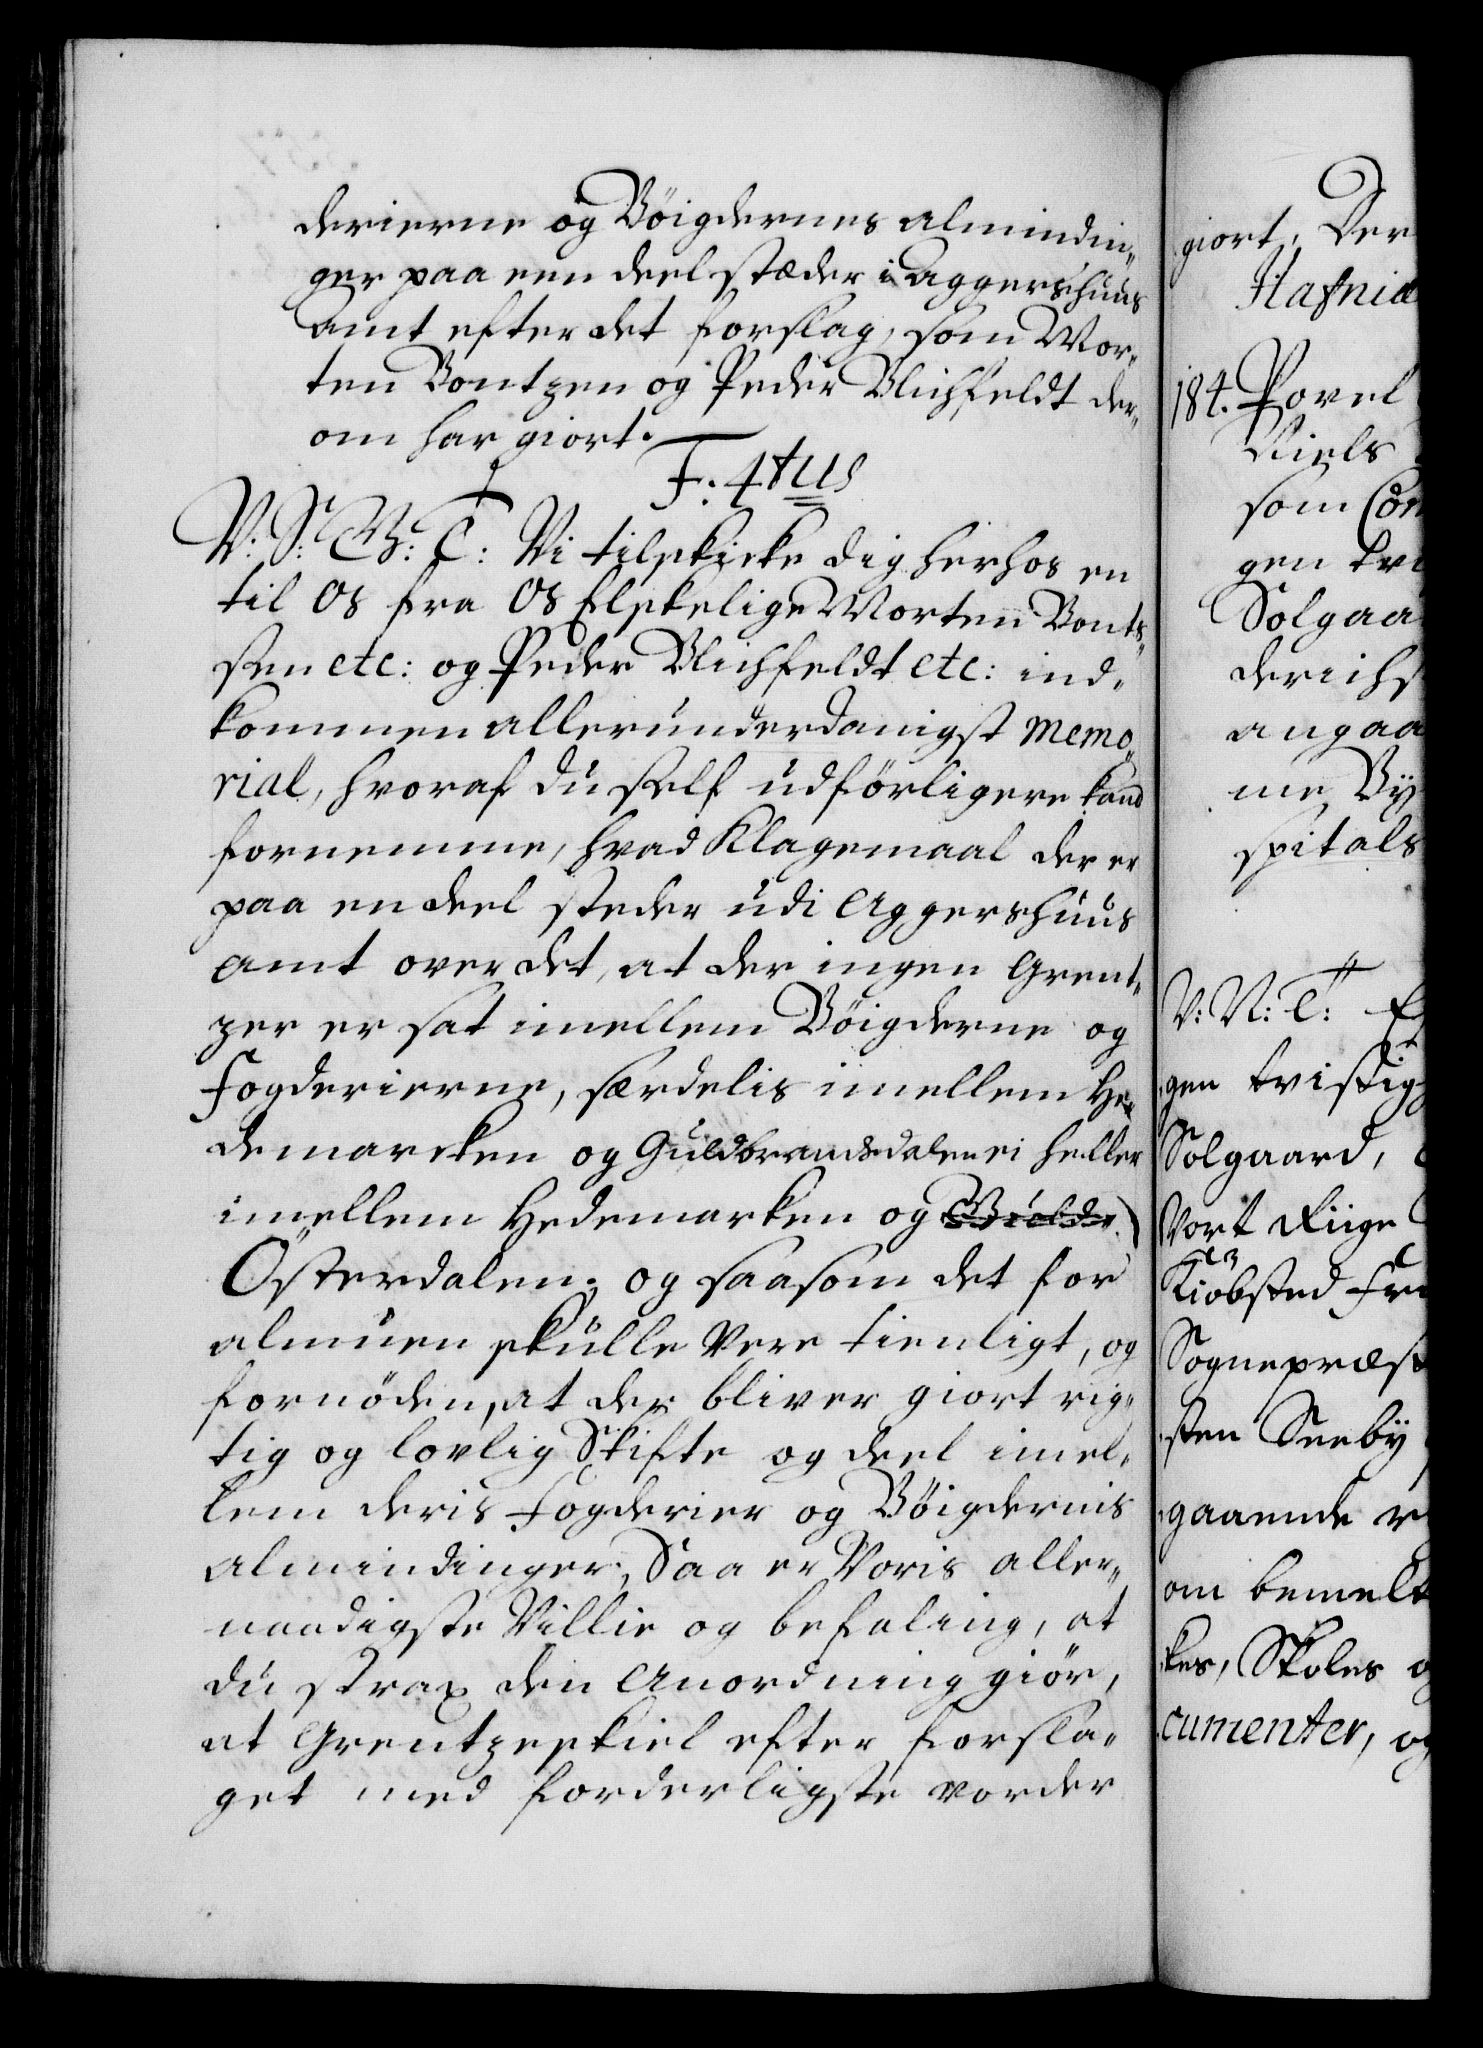 derierne og Böigdernes almindin„
ger paa een deel stæder i Aggershuus
Amt efter det forslag, som Mor„
ten Bontzen og Peder Blichfeldt der„
om har giort.
F: 4tus
V: S: G: T: Vi tilskicke dig herhos en
til Os fra Os Elskelige Morten Bont„
sen etc: og Peder Blichfeldt etc: ind„
kommen allerunderdanigst memo„
rial, hvoraf du self udförligere kand
fornemme, hvad Klagemaal der er
paa en deel steder udi Aggershuus
amt over det, at der ingen Grent„
zer er sat imellem Böigderne og
Fogderierne, særdelis imellem He„
demarcken og Guldbrandsdalen ei heller
imellem Hedemarken og
Österdalen; og saasom det for
almuen skulle vere tienligt, og
fornöden, at der bliver giort rig„
tig og lovlig Skifte og deel imel„
lem deris Fogderier og Böigdernis
almindinger; Saa er Voris aller„
naadigste Villie og befaling, at
du strax den Anordning giör,
at Grentzeskiel efter forsla„
get med forderligste vorder
giort, Der
Hafniæ
184. Povel
Niels
som Com
gen tvi
Solgaa
derichs
angaa
me By
spitals
V: N: T:
gen tvistig
Solgaard,
Vort Riige
Kiöbsted Fre
Sognepræst
sten Seeby
gaaende
om bemelt
kes, Skoles
cumenter, og